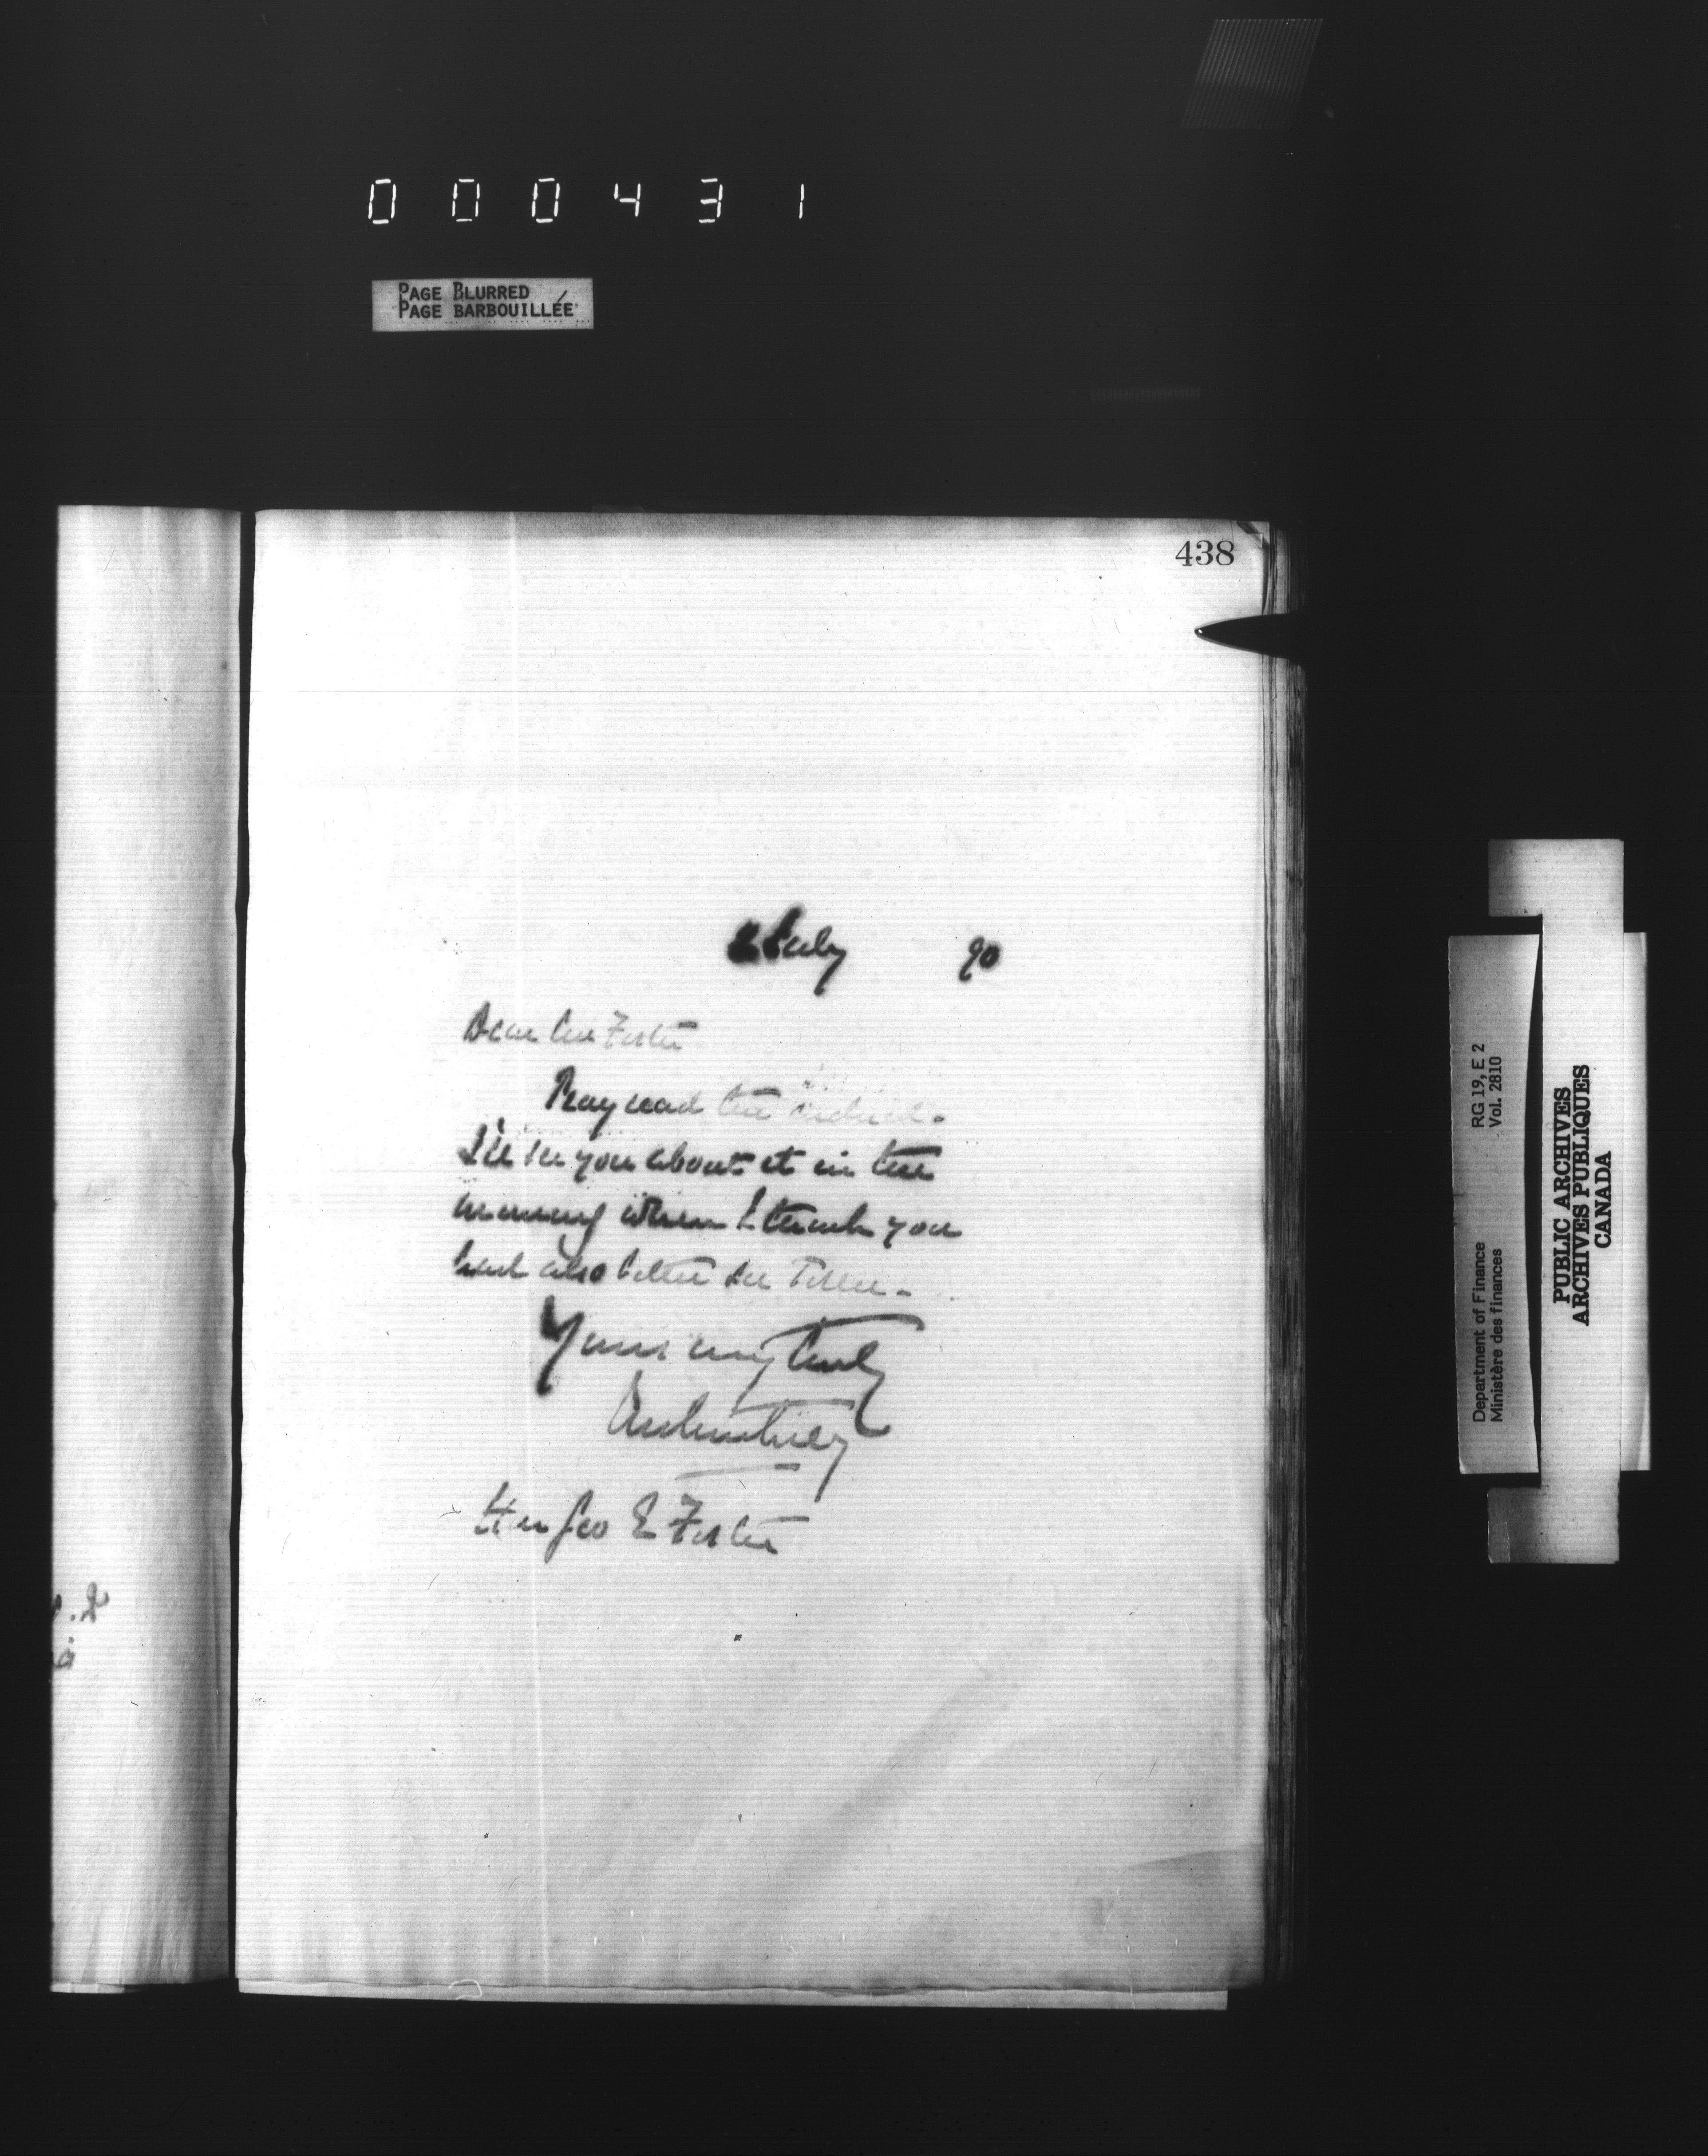 000431
PAGE BLURRED
PAGE BARBOUILLÉE
438
July 90
Dear Mr Foster
Pray read the enclosed.
I'll see you about it in the
morning when I think you
had also better see Toller.
Yours very truly
Hon Geo E Foster
RG 19, E 2
Vol. 2810
Department of Finance
Ministère des finances
PUBLIC ARCHIVES
ARCHIVES PUBLIQUES
CANADA